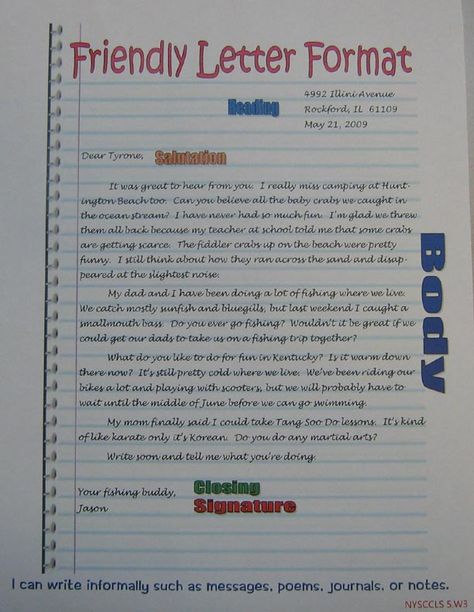 Friendly Letter Format
4992 Illini Avenue
Heading
Rockford, IL 61109
May 21, 2009
Dear Tyrone, Salutation
It was great to hear from you. I really miss camping at Hunt-
ington Beach too. Can you believe all the baby crabs we caught in
the ocean stream? I have never had so much fun. I'm glad we threw
them all back because my teacher at school told me that some crabs
are getting scarce. The fiddler crabs up on the beach were pretty
funny. I still think about how they ran across the sand and disap-
peared at the slightest noise.
My dad and I have been doing a lot of fishing where we live.
We catch mostly sunfish and bluegills, but last weekend I caught a
smallmouth bass. Do you ever go fishing? Wouldn't it be great if we
could get our dads to take us on a fishing trip together?
What do you like to do for fun in Kentucky? Is it warm down
there now? It's still pretty cold where we live. We've been riding our
bikes a lot and playing with scooters, but we will probably have to
wait until the middle of June before we can go swimming.
My mom finally said I could take Tang Soo Do lessons. It's kind
of like karate only it's Korean. Do you do any martial arts?
Write soon and tell me what you're doing.
Body
Your fishing buddy, Closing
Jason Signature
I can write informally such as messages, poems, journals, or notes.
NYSCCLS 5.W3